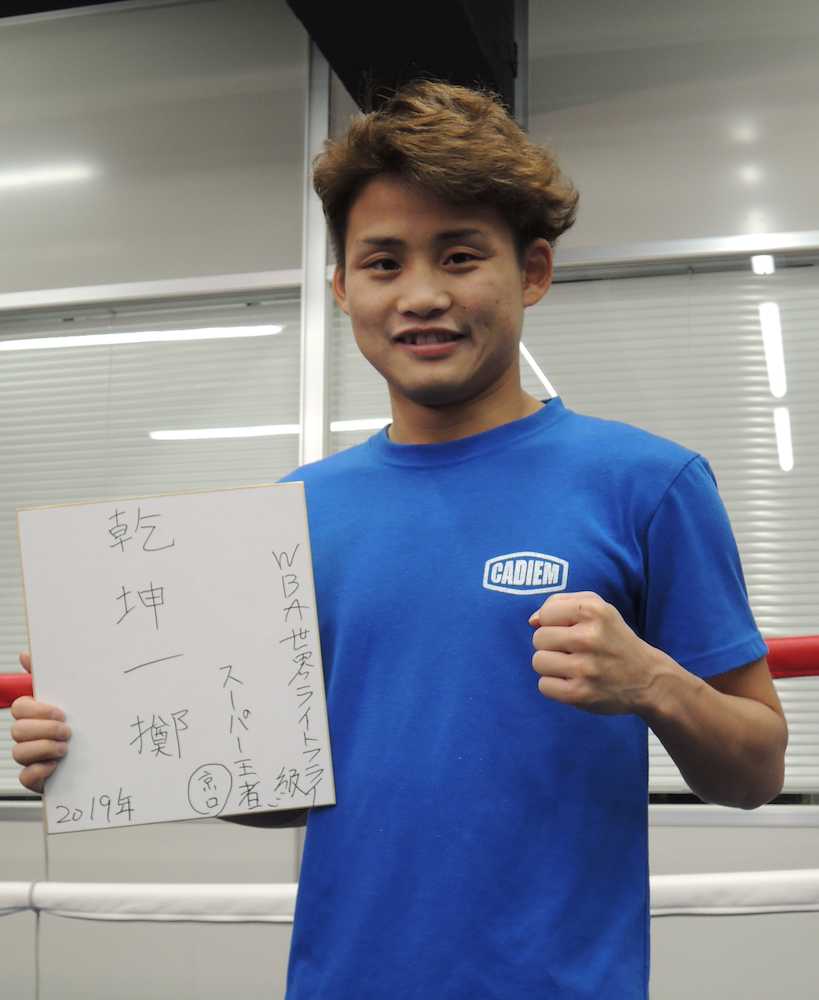 WBA世界ライトフライ級
スーパー王者
京口
乾坤一擲
2019年
CADIEM